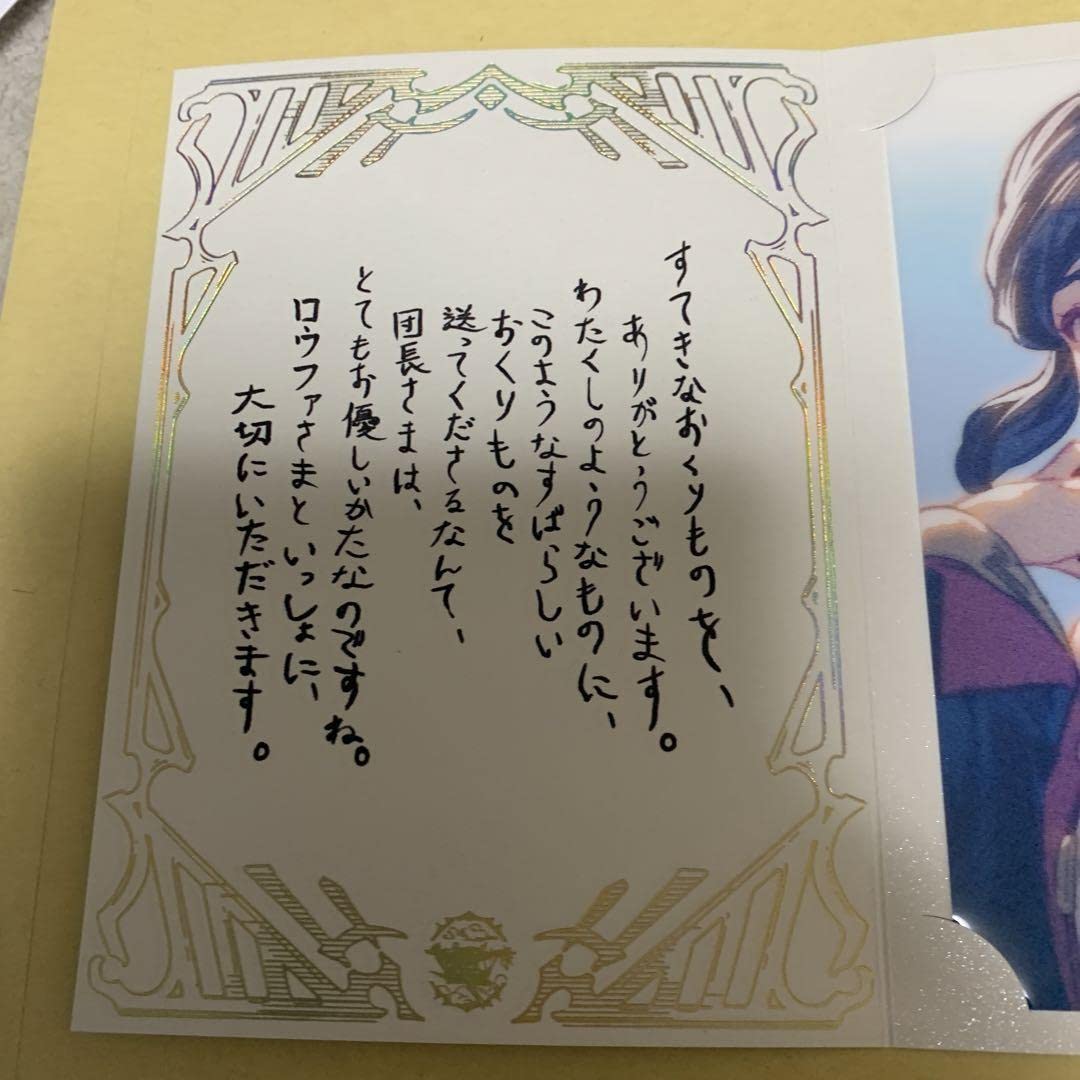 すてきなおくりものを、
ありがとうございます。
わたくしのようなものに、
このようなすばらしい
おくりものを
送ってくださるなんて、
団長さまは、
とてもお優しいかたなのですね。
ロウファさまといっしょに、
大切にいただきます。